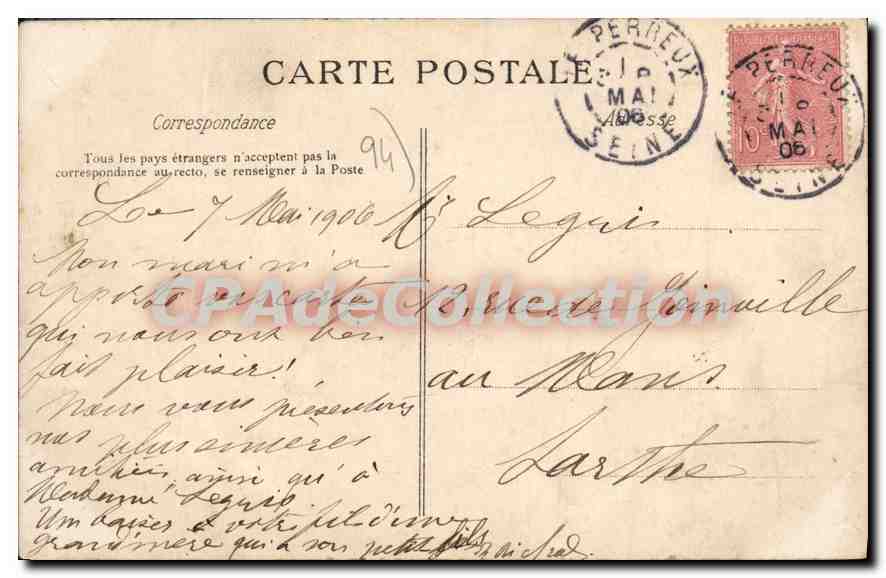 CARTE POSTALE
LE PERREUX
MAI
06
SEINE
LE PERREUX
MAI
06
SEINE
10
Correspondance
Adresse
Tous les pays étrangers n'acceptent pas la
correspondance au recto, se renseigner à la Poste
94
Le 7 Mai 1906
Mon mari m'a
apporté vos cartes
qui nous ont bien
fait plaisir!
Nous vous présentons
nos plus sincères
amitiés, ainsi qu'à
Madame Leguis
Un baiser à votre fil d'une
grand'mère qui a son petit fils
Mr Leguis
12, rue de Joinville
au Mans
Sarthe
CPAdeCollection.com